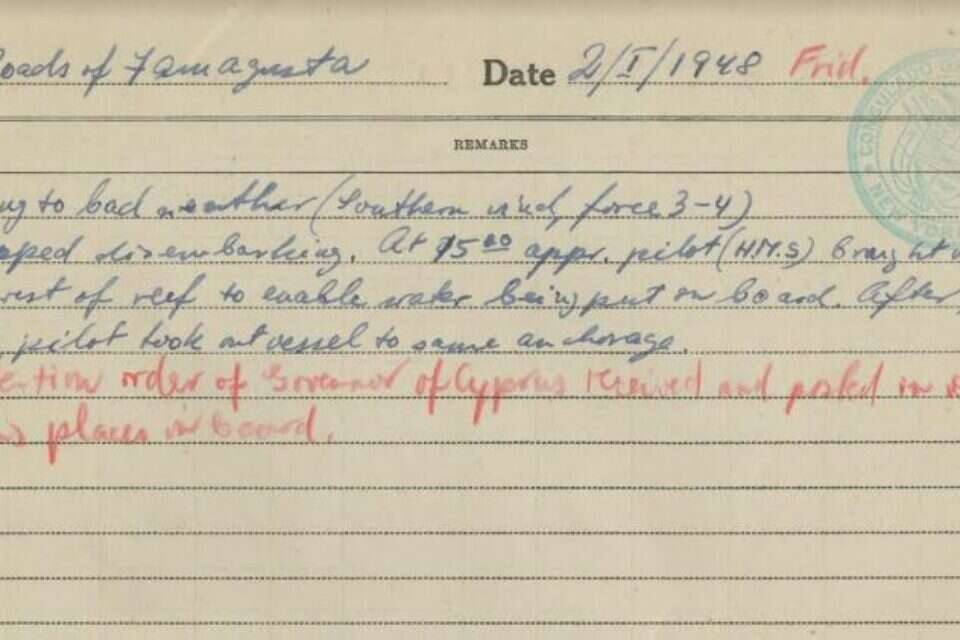 Roads of Famagusta Date 2/I/1948 Frid.
REMARKS
ing to bad weather (Southern wind, force 3-4)
opped disembarking. At 15⁰⁰ appr. pilot (H.M.S) brought
west of reef to enable water being put on board. After
pilot took out vessel to same anchorage.
ention order of Governor of Cyprus received and posted in
places on board.
CONSULADO
NEW YORK